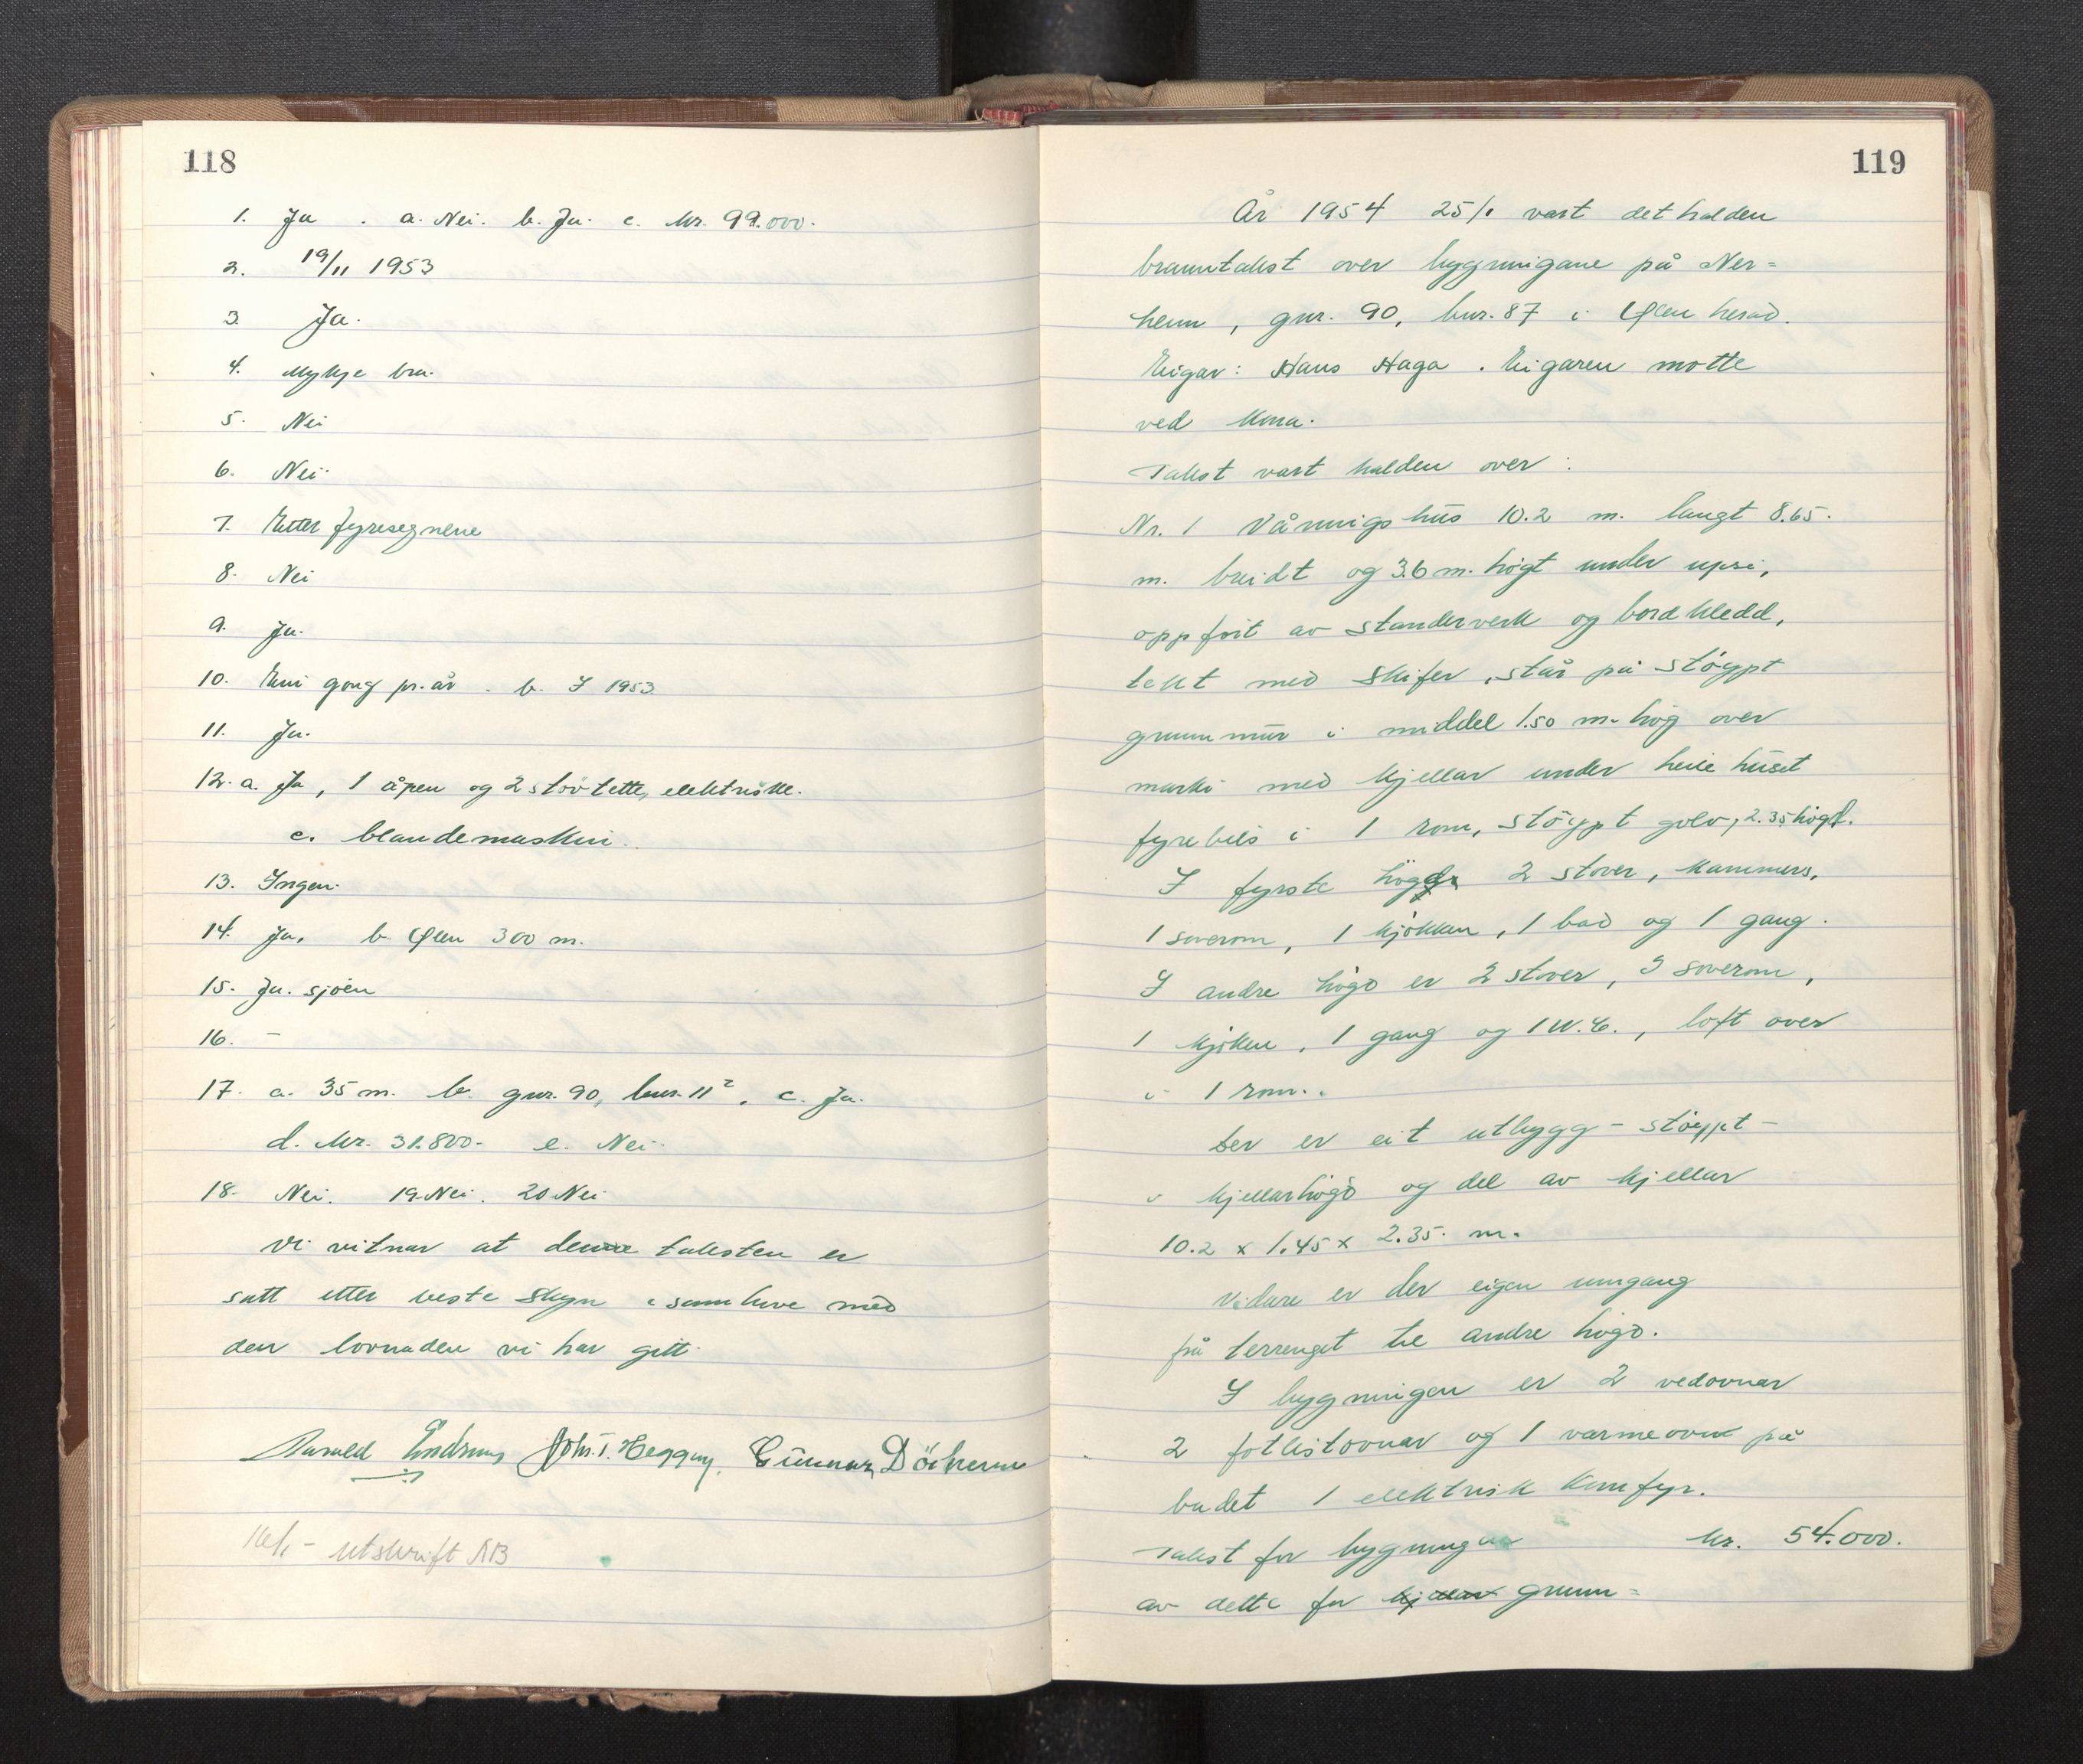 118
1. Ja . a. Nei. b. Ja. c. kr. 99.000.
2. 19/11 1953
3. Ja.
4. Mykje bra.
5. Nei
6. Nei.
7. Etter fyresegnene
8. Nei
9. Ja.
10. Ein gong pr. år . b. I 1953.
11. Ja.
12. a. Ja, 1 åpen og 2 støvtette, elektriske.
c. blandemaskin.
13. Ingen.
14. Ja. b. Ølen 300 m.
15. Ja. sjøen
16. –
17. a. 35 m. b. gnr. 90, bnr. 11², c. Ja.
d. kr. 31.800.- e. Nei.
18. Nei. 19. Nei. 20 Nei
Vi vitnar at denne taksten er
sett etter beste skyn i samhøve med
den lovnaden vi har gitt.
John. T. Heggøy, Gunnar
– utskrift
119
År 1954 25/1 vart det halden
branntakst over bygningane på Ner=
heim, gnr. 90, bnr. 87 i Ølen herad.
Eigar: Hans Haga . Eigaren møtte
ved kona.
Takst vart halden over :
Nr. 1 Våningshus 10.2 m. langt 8.65.
m. breidt og 3.6 m. høgt under upsi,
oppført av standerverk og bordkledd,
tekt med skifer, står på støypt
grunnmur i middel 1.50 m. høg over
marki med kjellar under heile huset
fyrebils i 1 rom, støypt golv, 2.35 høgd.
I fyrste høgd 2 stover, kammers,
1 soverom, 1 kjøkken, 1 bad og 1 gang.
I andre høgd er 2 stover, 3 soverom,
1 kjøken, 1 gang og 1 W.C., loft over
i 1 rom.
Der er eit utbygg – støypt –
i kjellarhøgd og del av kjellar
10.2 x 1.45 x 2.35. m.
Vidare er der eigen inngang
på terrenget til andre høgd.
I bygningen er 2 vedovnar
2 fotlistovnar og 1 varmeovn på
badet 1 elektrisk komfyr.
Takst for bygningen kr. 54.000.
av dette for kjellar grunn=